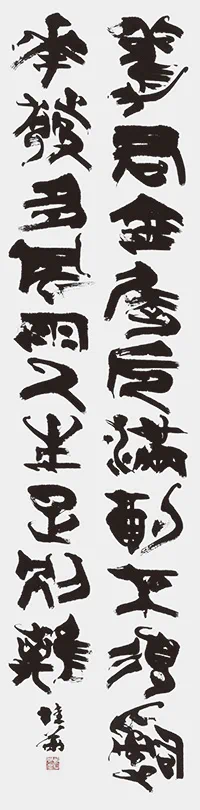 勸君金屈卮滿酌不須辭
花發多風雨人生足別離